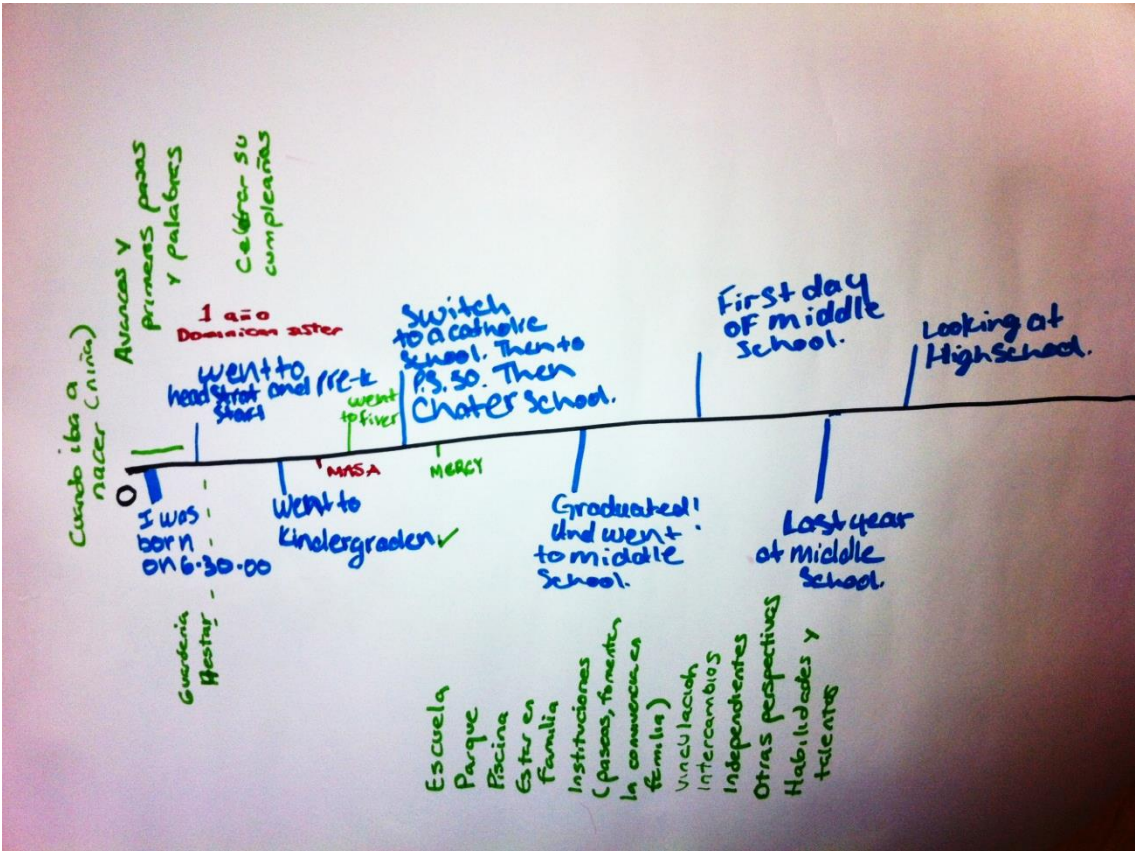 Cuando iba a
nacer (niña)
Avances y
primeros pasos
y palabras
Celebrar su
cumpleaños
1 año
Dominican sister
went to
headstrat and Pre-k
Start
went
to fiver
Switch
to a catholic
School. Then to
P.S. 50. Then
Chater School.
First day
of middle
School.
Looking at
High School.
0
I was
born
on 6.30.00
Went to
Kindergraden ✓
MASA
MERCY
Graduated!
And went
to middle
School.
Last year
at middle
School.
Guarderia
Hestar
Escuela
Parque
Piscina
Estar en
familia
Instituciones
(paseos, fomentan
la convivencia en
familia)
Vinculación
Intercambios
Independientes
Otras perspectivas
Habilidades y
talentos